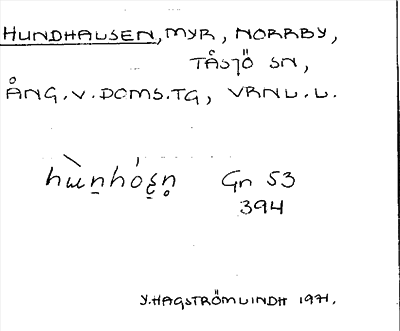 HUNDHAUSEN, MYR, NORRBY,
TÅSJÖ SN,
ÅNG.V.DOMS.TG, VRNL.L.
Gn 53
394
Y.HAGSTRÖMLINDH 1971.